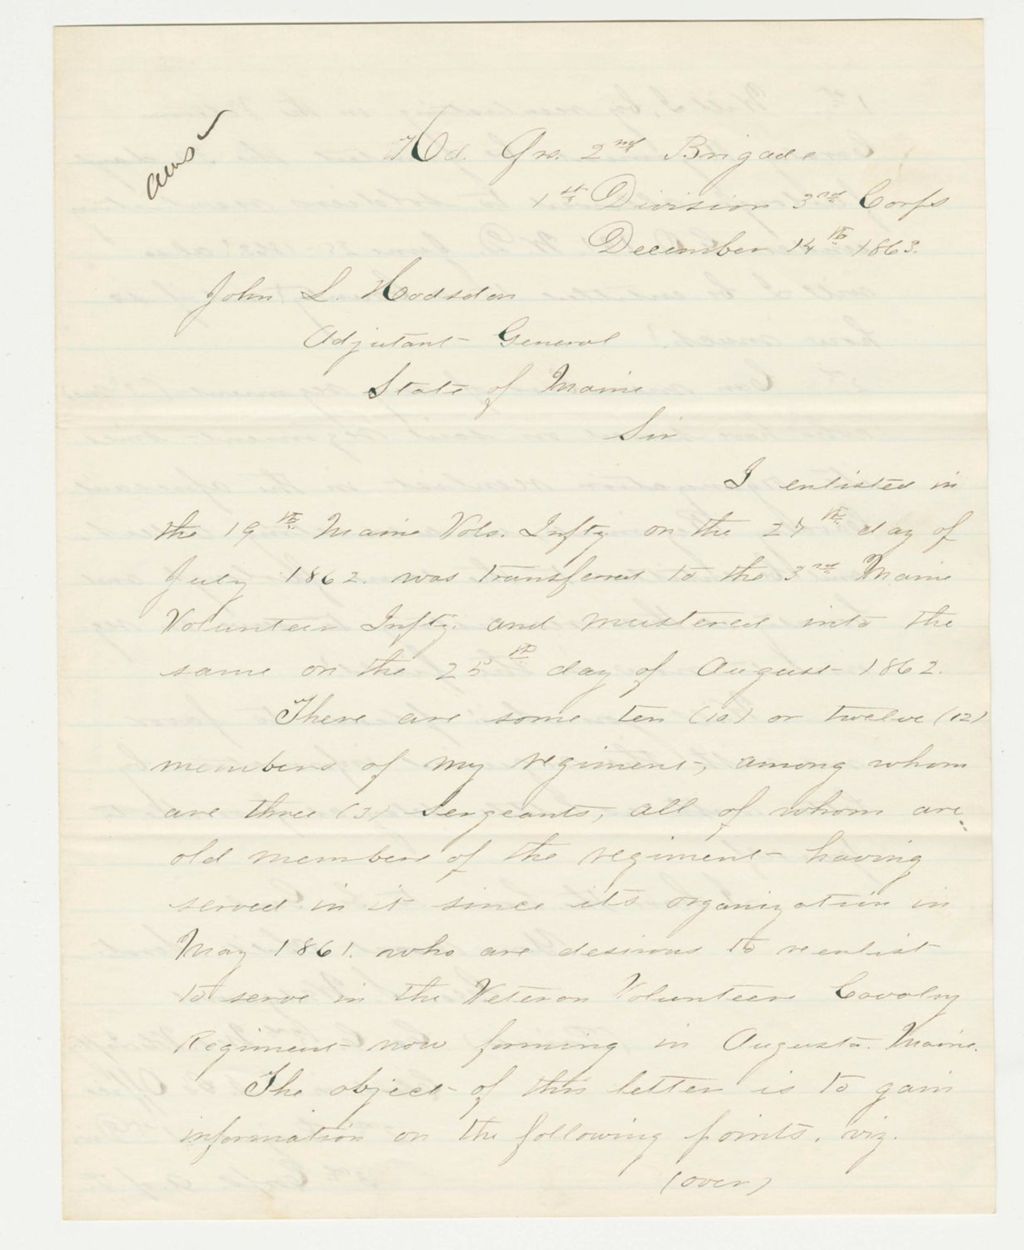 ans
Hd. Qrs. 2nd Brigade
1st Division 3rd Corps
December 14th 1863.
John L. Hodsdon
Adjutant General
State of Maine
Sir
I enlisted in
the 19th Maine Vols. Infty on the 27th day of
July 1862. was transferred to the 3rd Maine
Volunteer Infty. and mustered into the
same on the 25th day of August 1862.
There are some ten (10) or twelve (12)
members of my regiment, among whom
are three (3) Sergeants, all of whom are
old members of the regiment having
served in it since its organization in
May 1861. who are desirous to reenlist
to serve in the Veteran Volunteer Cavalry
Regiment now forming in Augusta. Maine.
The object of this letter is to gain
information on the following points. viz.
(over)